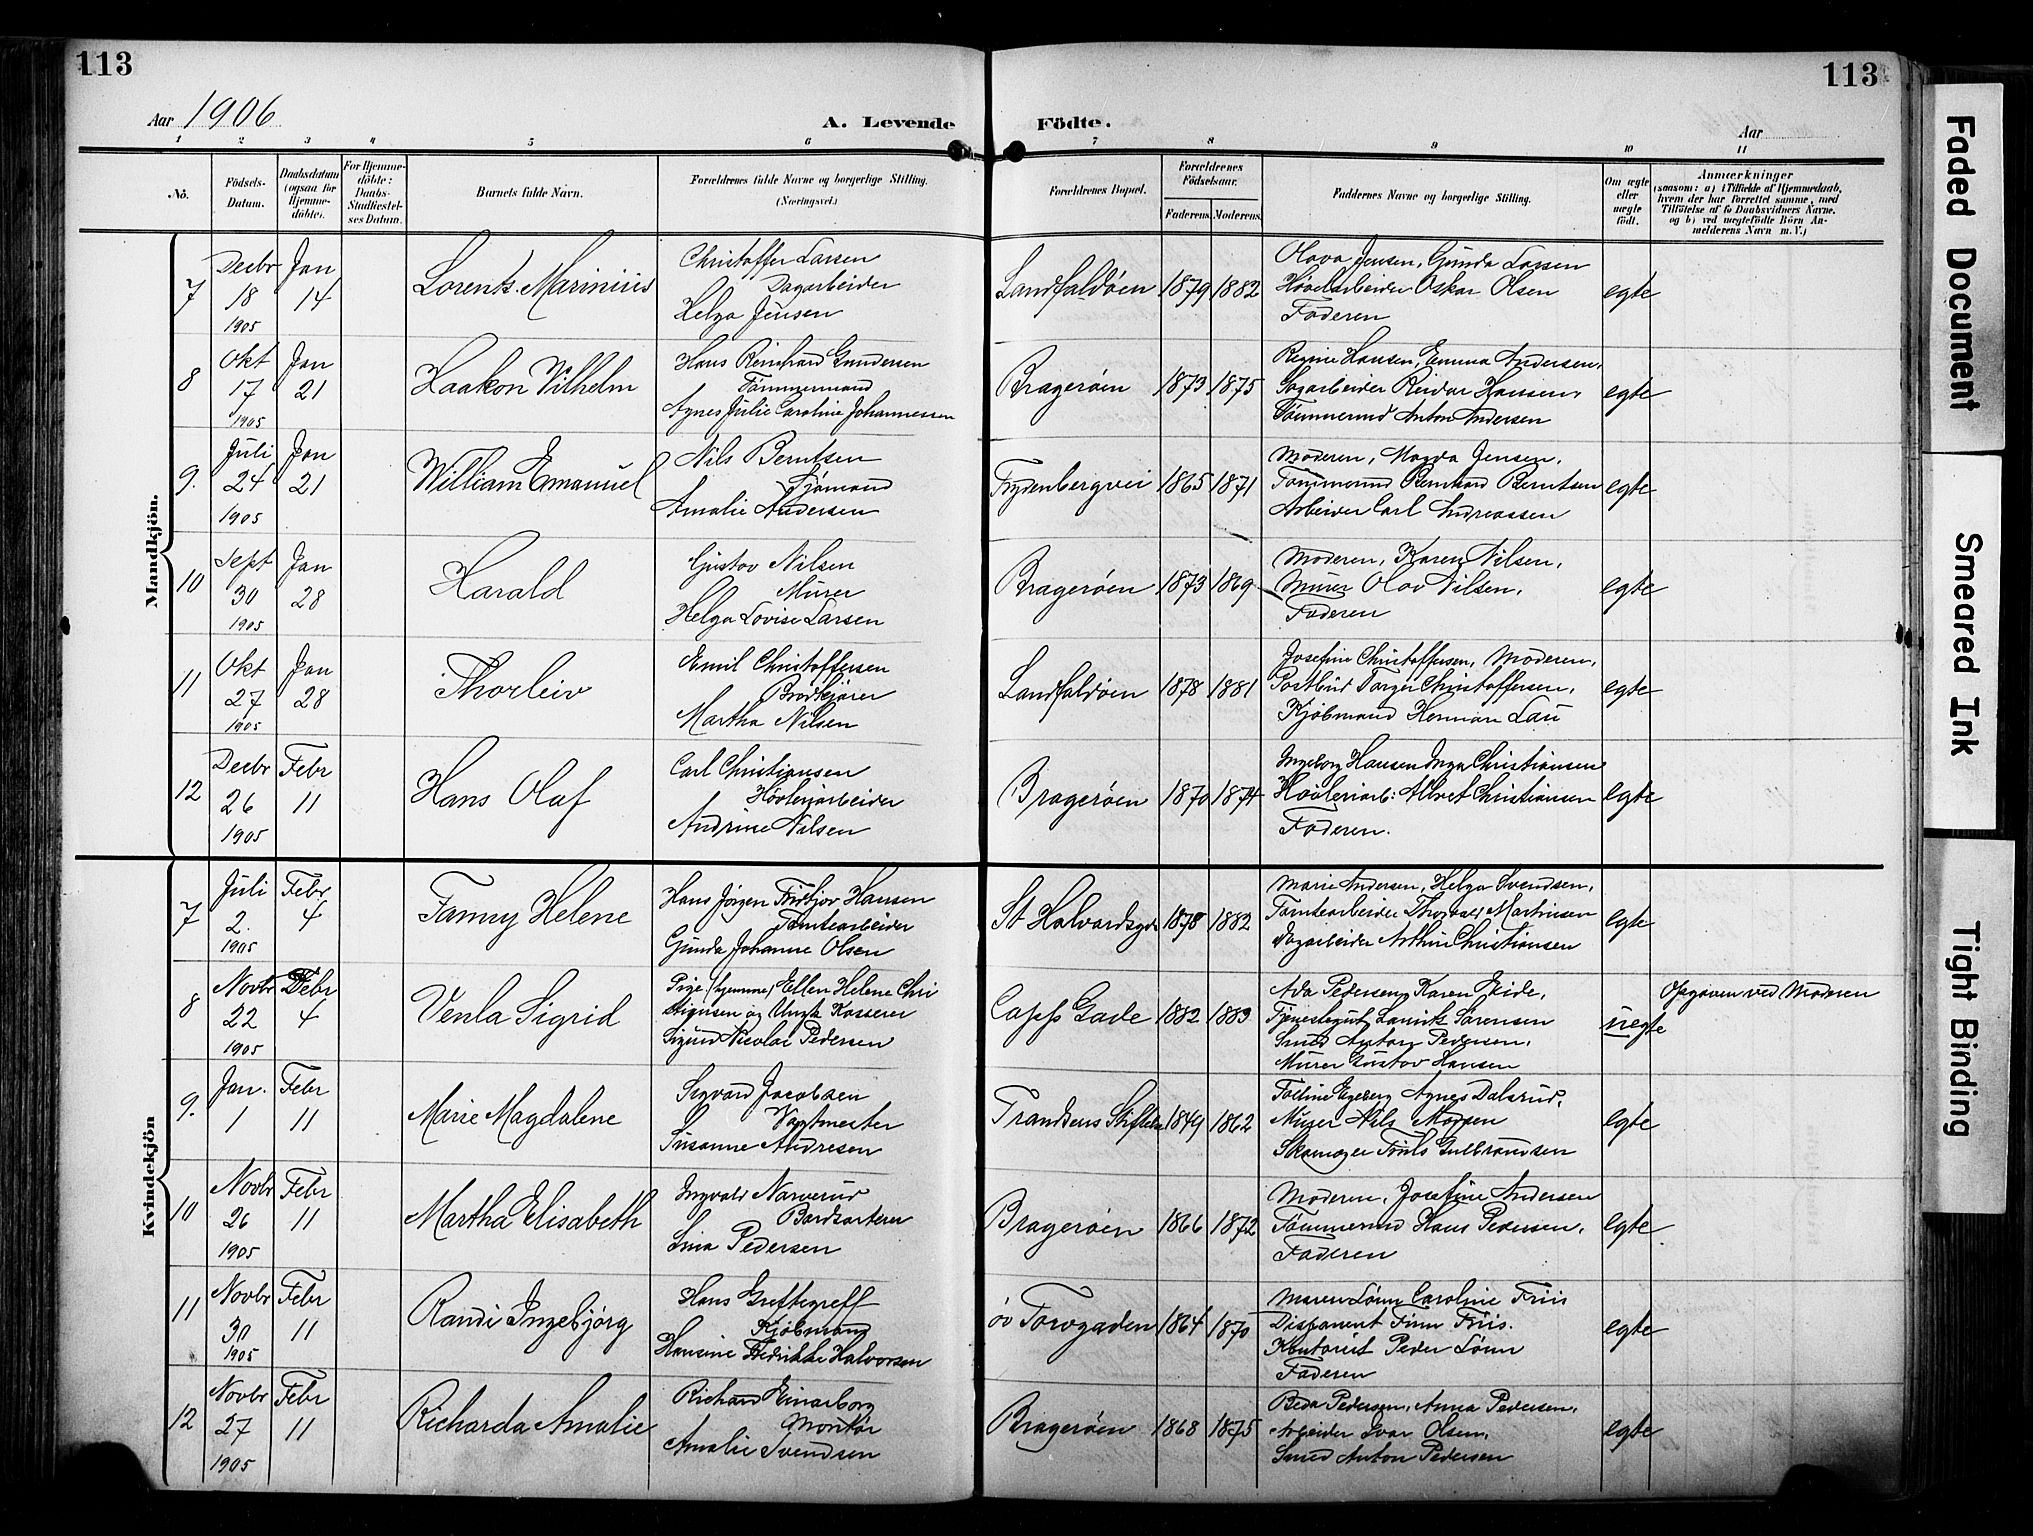 113
113
Aar 1906
A. Levende
Födte.
Aar
1 2 3 4 5 6 7 8 9 10 11
No.
Födsels-Datum.
Daabsdatum (ogsaa for Hjemme-döbte).
For Hjemme-döbte: Daabs-Stadfæstel-ses Datum.
Barnets fulde Navn.
Forældrenes fulde Navne og borgerlige Stilling.
(Næringsvei.)
Forældrenes Bopæl.
Forældrenes Födselsaar.
Faderens. Moderens.
Faddernes Navne og borgerlige Stilling.
Om ægte eller uægte födt.
Anmærkninger
(saasom: a) i Tilfælde af Hjemmedaab,
hvem der har forrettet samme, med
Tilföielse af to Daabsvidners Navne,
og b) ved uægtefödte Börn An-
melderens Navn m. V.)
Mandkjön.
7 Decbr 18 1905 Jan 14
Lorentz Marinius
Christoffer Larsen
Dagarbeider
Helga Jensen
Landfaldöen 1879 1882
Olava Jensen, Gunda Larsen
Høvelarbeider Oskar Olsen
Faderen
egte
8 Okt 17 1905 Jan 21
Haakon Vilhelm
Hans Reinhard Gundersen
Tømmermand
Agnes Julie Caroline Johannessen
Bragerøen 1873 1875
Regine Hansen, Emma Andersen,
Sagarbeider Reidar Hansen,
Tømmermd Anton Andersen
egte
9. Juli 24 1905 Jan 21
William Emanuel
Nils Berntsen
Sjømand
Amalie Andersen
Frydenbergvei 1865 1871
Moderen, Magda Jensen,
Tømmermd Bernhard Berntsen
Arbeider Carl Andreassen
egte
10 Sept 30 1905 Jan 28
Harald
Gustav Nilsen
Murer
Helga Lovise Larsen
Bragerøen 1873 1869
Moderen, Karen Nilsen,
Murer Olav Nilsen,
Faderen
egte
11 Okt 27 1905 Jan 28
Thorleiv
Emil Christoffersen
Brødkjører
Martha Nilsen
Landfaldöen 1878 1881
Josefine Christoffersen, Moderen,
Postbud Torger Christoffersen,
Kjøbmand Herman Lau
egte
12 Decbr 26 1905 Febr 11
Hans Olaf
Carl Christiansen
Høvleriarbeider
Andrine Nilsen
Bragerøen 1870 1874
Ingeborg Hansen Inga Christiansen
Høvleriarb: Albret Christiansen
Faderen.
egte
Kvindekjön
7 Juli 2. 1905 Febr 4
Fanny Helene
Hans Jørgen Fridtjov Hansen
Tomtearbeider
Gunda Johanne Olsen
St Halvardsgd 1878 1882
Marie Andersen, Helga Svendsen,
Tomtearbeider Thorvald Martinsen
Dagarbeider Arthur Christiansen
egte
8 Novbr 22 1905 Febr 4
Venla Sigrid
Pige (hjemme) Ellen Helene Chri
stigersen og Ungk Kasserer
Sigurd Nicolai Pedersen
Capps Gade 1882 1883
Ada Pedersen, Karen Eide,
Tjenestegut Lauritz Sørensen
Smed Anton Pedersen,
Murer Gustav Hansen
uegte
Opgiven ved Moderen
9. Jan. 1 Febr 11
Marie Magdalene
Segvard Jacobsen
Vagtmester
Susanne Andresen
Frandsens Stiftelse 1849 1862
Egeberg Agnes Dalsrud,
Murer Nils Madsen
Skomager Truls Gulbrandsen
egte
10 Novbr 26 1905 Febr 11
Martha Elisabeth
Ingvald Narverud
Bordsorterer
Lina Pedersen
Bragerøen 1866 1872
Moderen, Josefine Andersen
Tømmermd Hans Pedersen,
Faderen
egte
11 Novbr 30 1905 Febr 11
Randi Ingebjørg
Hans Greftegreff
Kjøbmand
Hansine Fredrikke Halvorsen
øv Torvgaden 1864 1870
Maren Lønn Caroline Friis
Disponent Finn Friis.
Kontorist Peder Lønn
Faderen
egte
12 Novbr 27 1905 Febr 11
Richarda Amalie
Richard Einarborg
Montør
Amalie Svendsen
Bragerøen 1868 1875
Beda Pedersen, Anna Pedersen,
Arbeider Ivar Olsen,
Smed Anton Pedersen
egte
Faded Document
Smeared Ink
Tight Binding